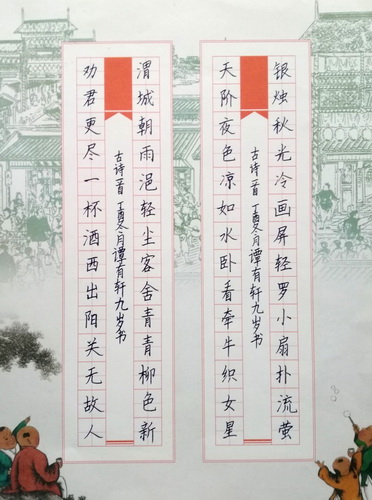 银烛秋光冷画屏轻罗小扇扑流萤
古诗一首 丁酉冬月谭有轩九岁书
天阶夜色凉如水卧看牵牛织女星
渭城朝雨浥轻尘客舍青青柳色新
古诗一首 丁酉冬月谭有轩九岁书
劝君更尽一杯酒西出阳关无故人